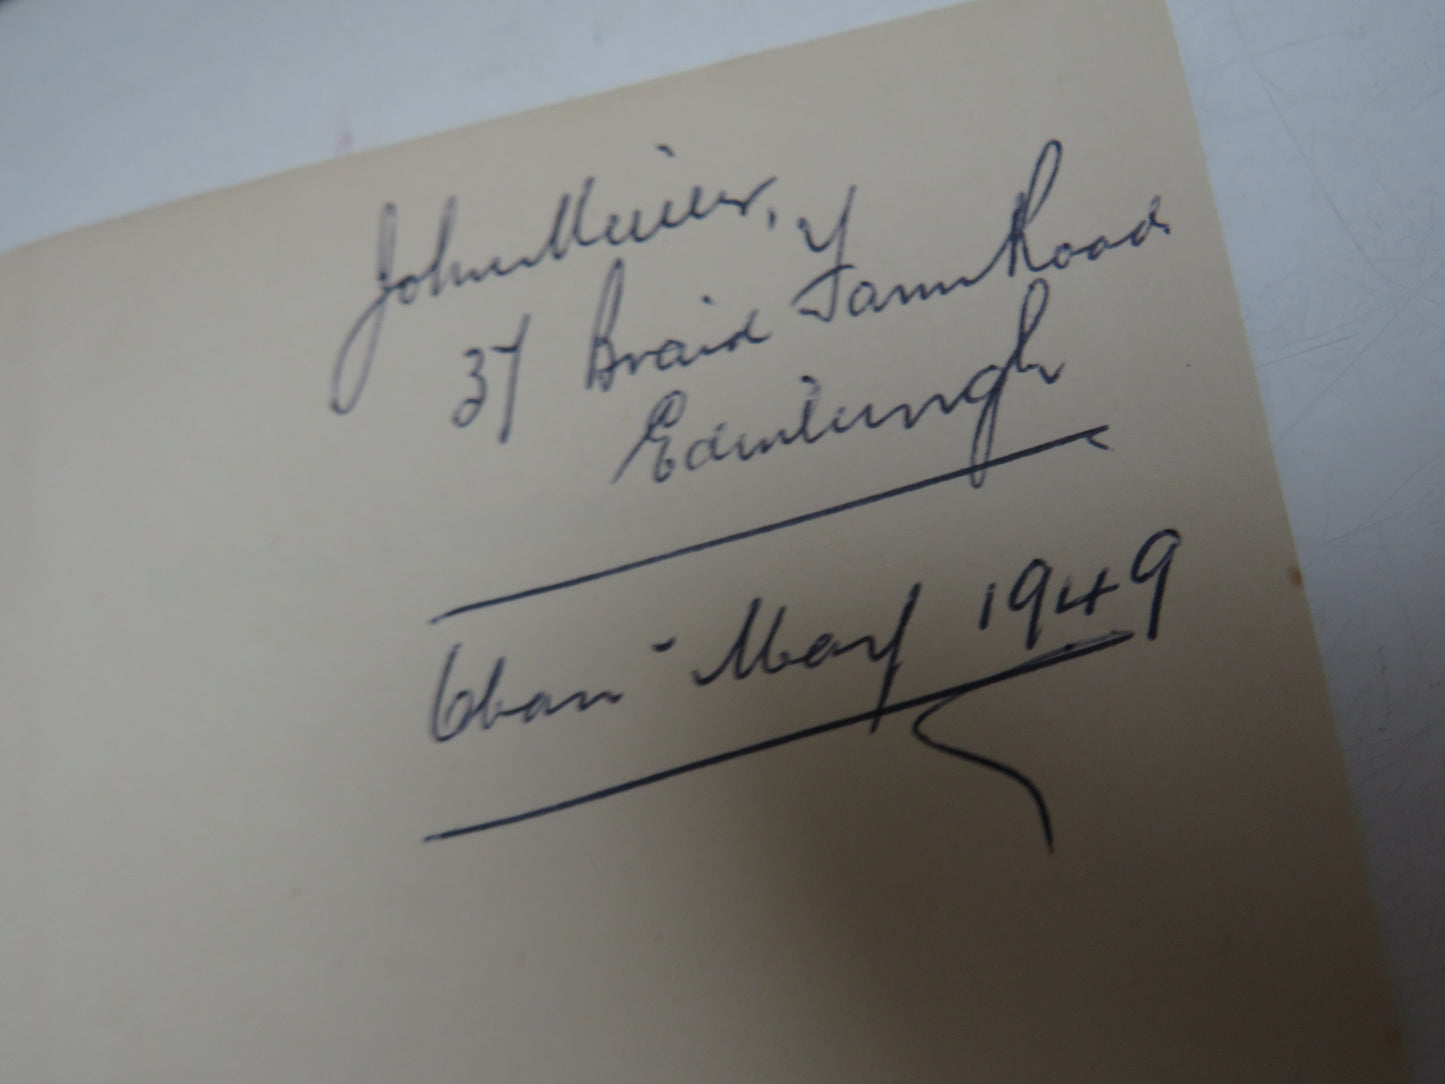 John Miller,
37 Braid Farm Road
Edinburgh
Oban - May 1949